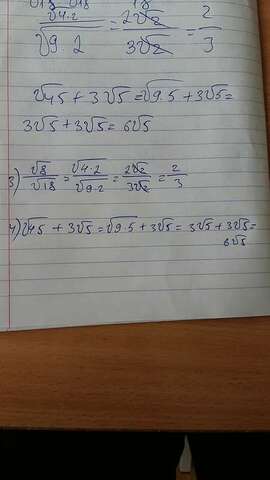 √4·2 / √9·2 = 2√2 / 3√2 = 2/3
√45 + 3√5 = √9·5 + 3√5 =
3√5 + 3√5 = 6√5
3) √8 / √18 = √4·2 / √9·2 = 2√2 / 3√2 = 2/3
4) √45 + 3√5 = √9·5 + 3√5 = 3√5 + 3√5 =
6√5